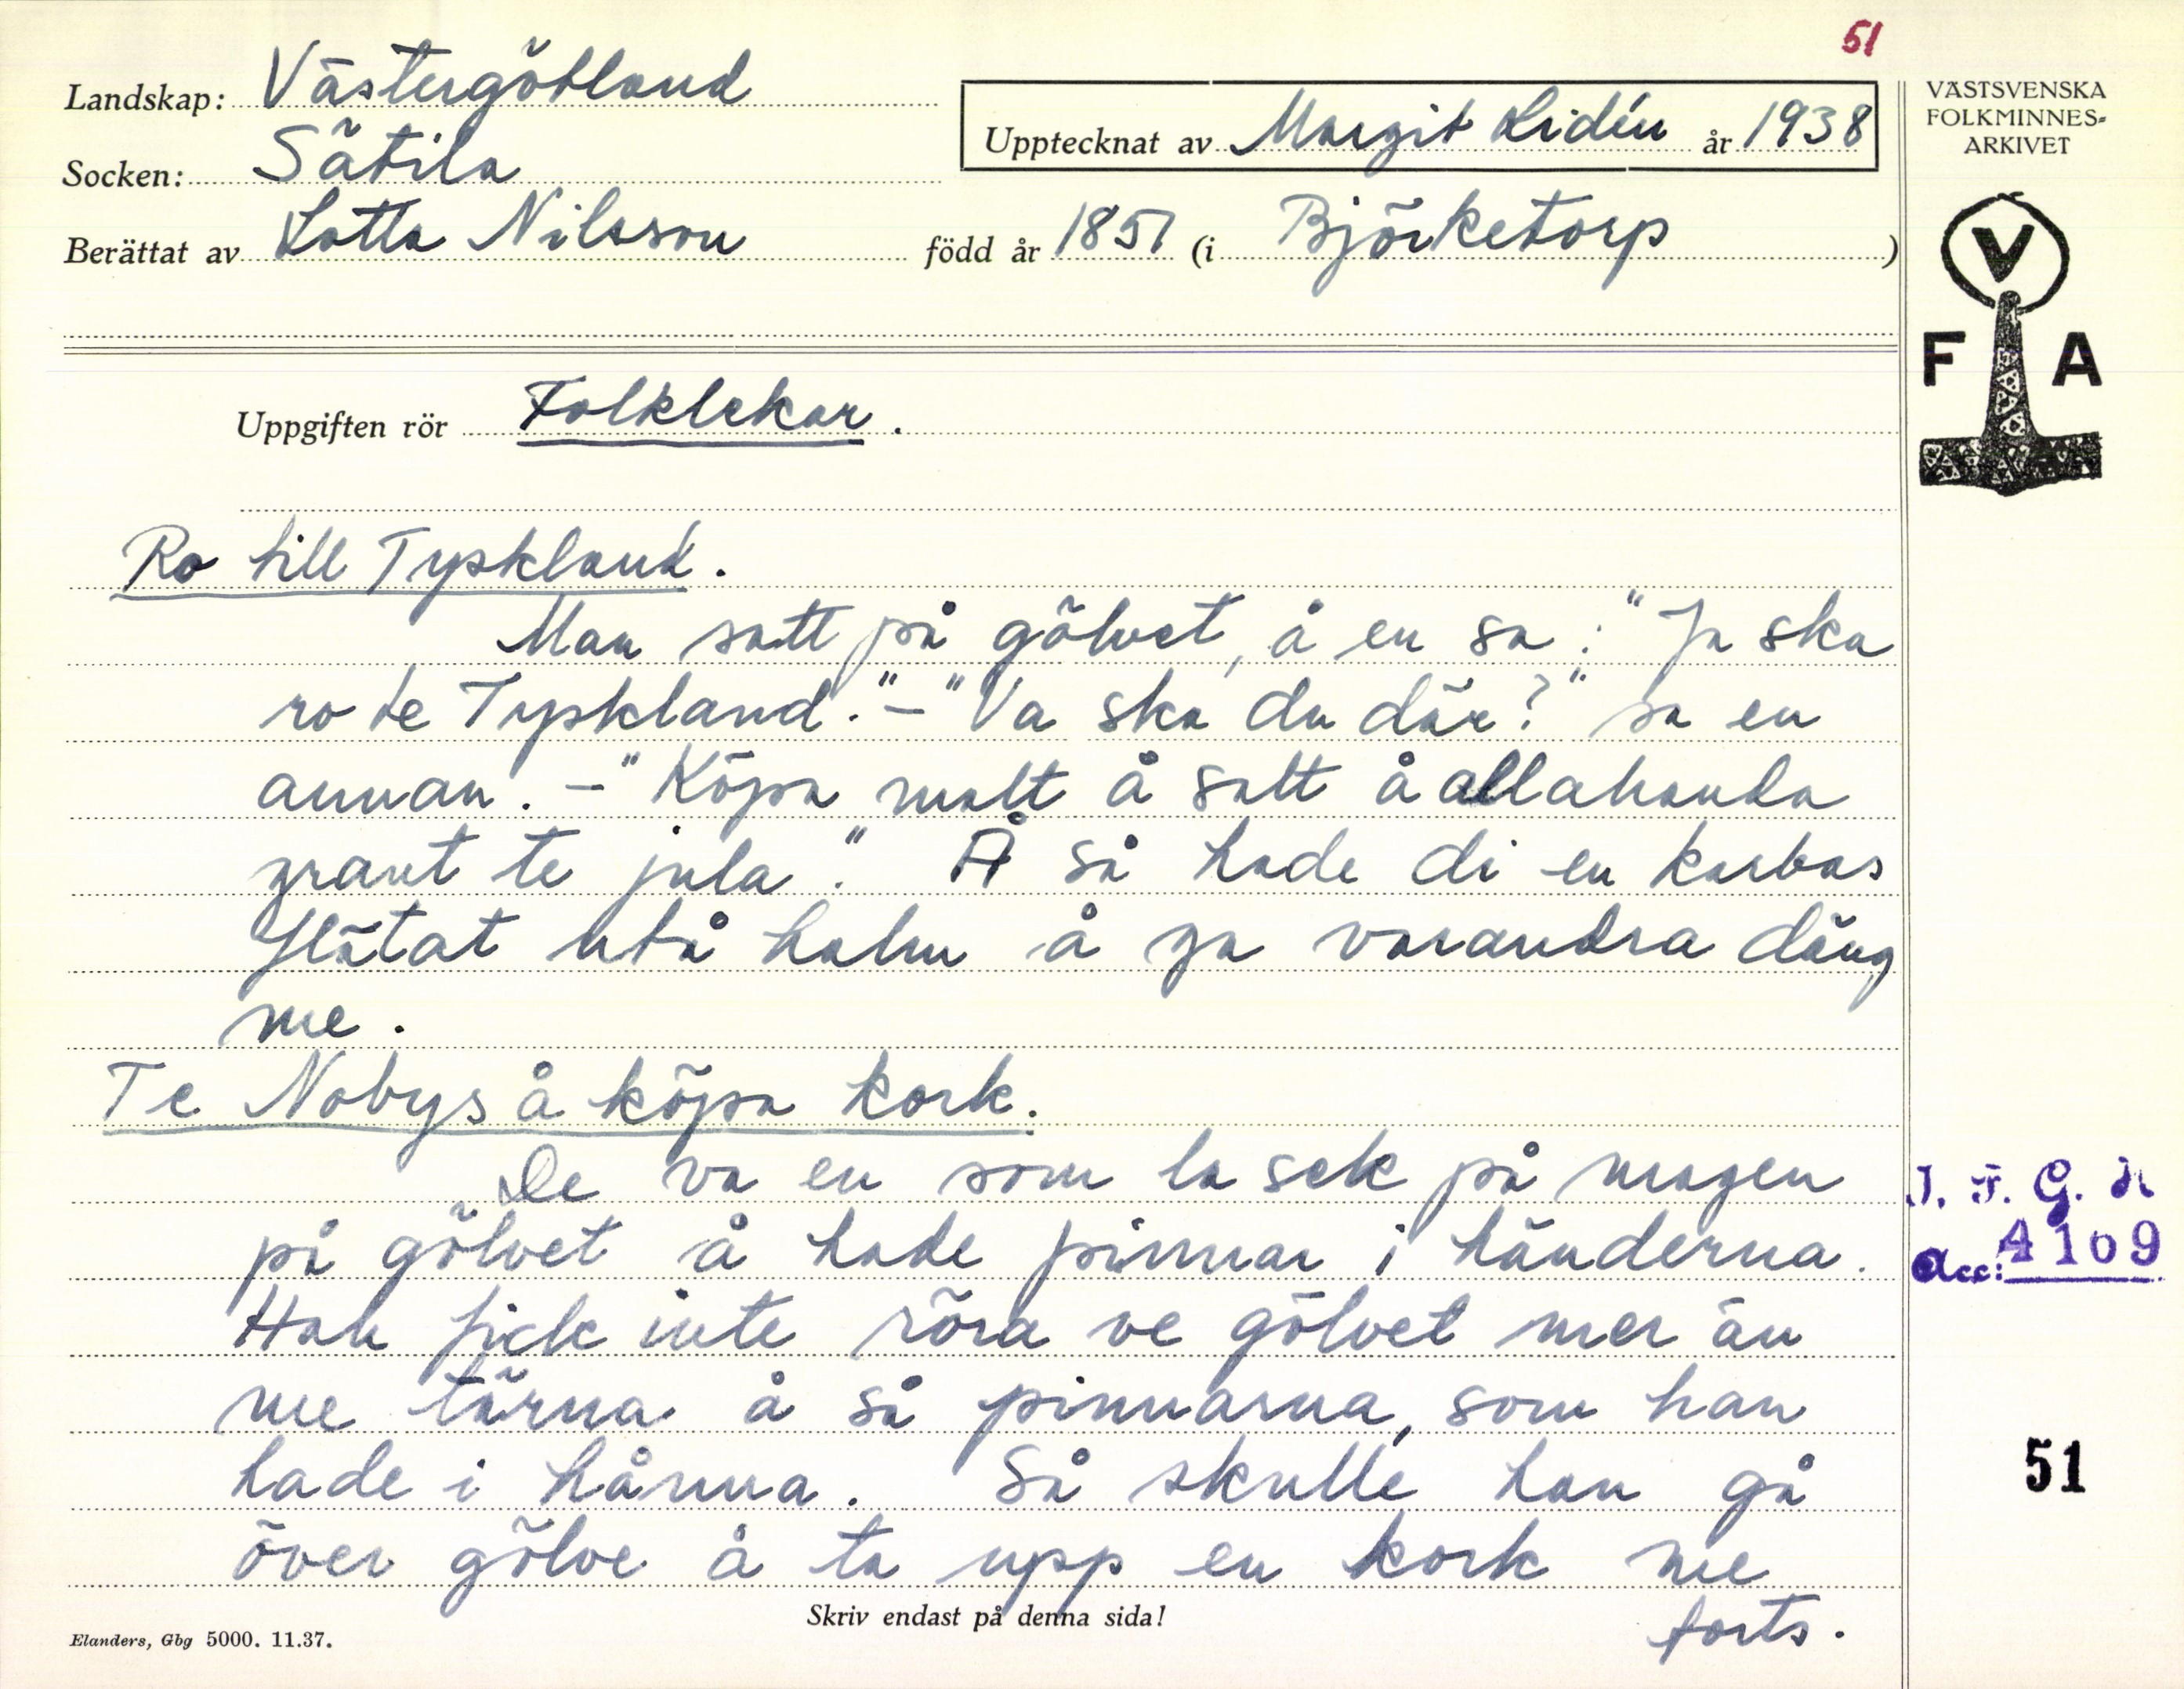 51
Landskap: Västergötland
Socken: Sätila
Berättat av Lotta Nilsson född år 1851 (i Björketorp)
Upptecknat av Margit Lidén år 1938
VÄSTSVENSKA
FOLKMINNES-
ARKIVET
V
F A
Uppgiften rör Folklekar.
Ro till Tyskland.
Man satt på gölvet, å en sa: "Ja ska
ro te Tyskland." - "Va ska du där?" sa en
annan. - "Köpa malt å salt å allahanda
grant te jula." Å så hade di en karbas
flätat utå halm å ga varandra däng
me.
Te Nobys å köpa kork.
De va en som la sek på magen
på gölvet å hade pinnar i händerna.
Han fick inte röra ve gölvet mer än
me tårna å så pinnarna, som han
hade i hånna. Så skulle han gå
över gölve å ta upp en kork me
forts.
I. F. G. H
Acc: 4109
51
Skriv endast på denna sida!
Elanders, Gbg 5000. 11.37.